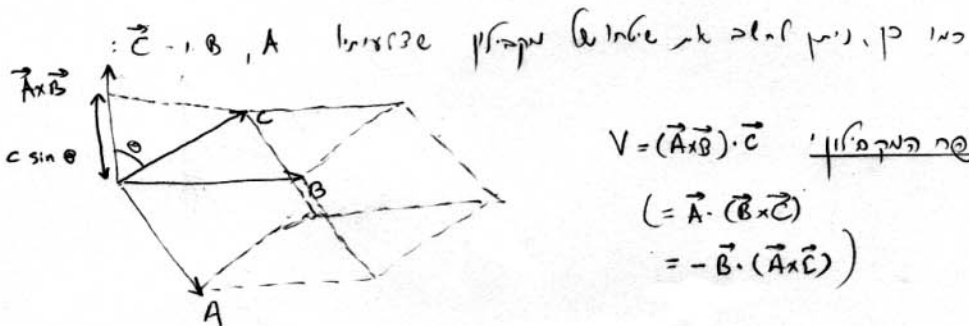 כמו כן, ניתן לחשב את שיטחו של מקבילון שצלעותיו
A, B ו- $\vec{C}$ :
$\vec{A} \times \vec{B}$
C
c sin θ
θ
B
A
נפח המקבילון: $V = (\vec{A} \times \vec{B}) \cdot \vec{C}$
$( = \vec{A} \cdot (\vec{B} \times \vec{C})$
$= -\vec{B} \cdot (\vec{A} \times \vec{C}) )$